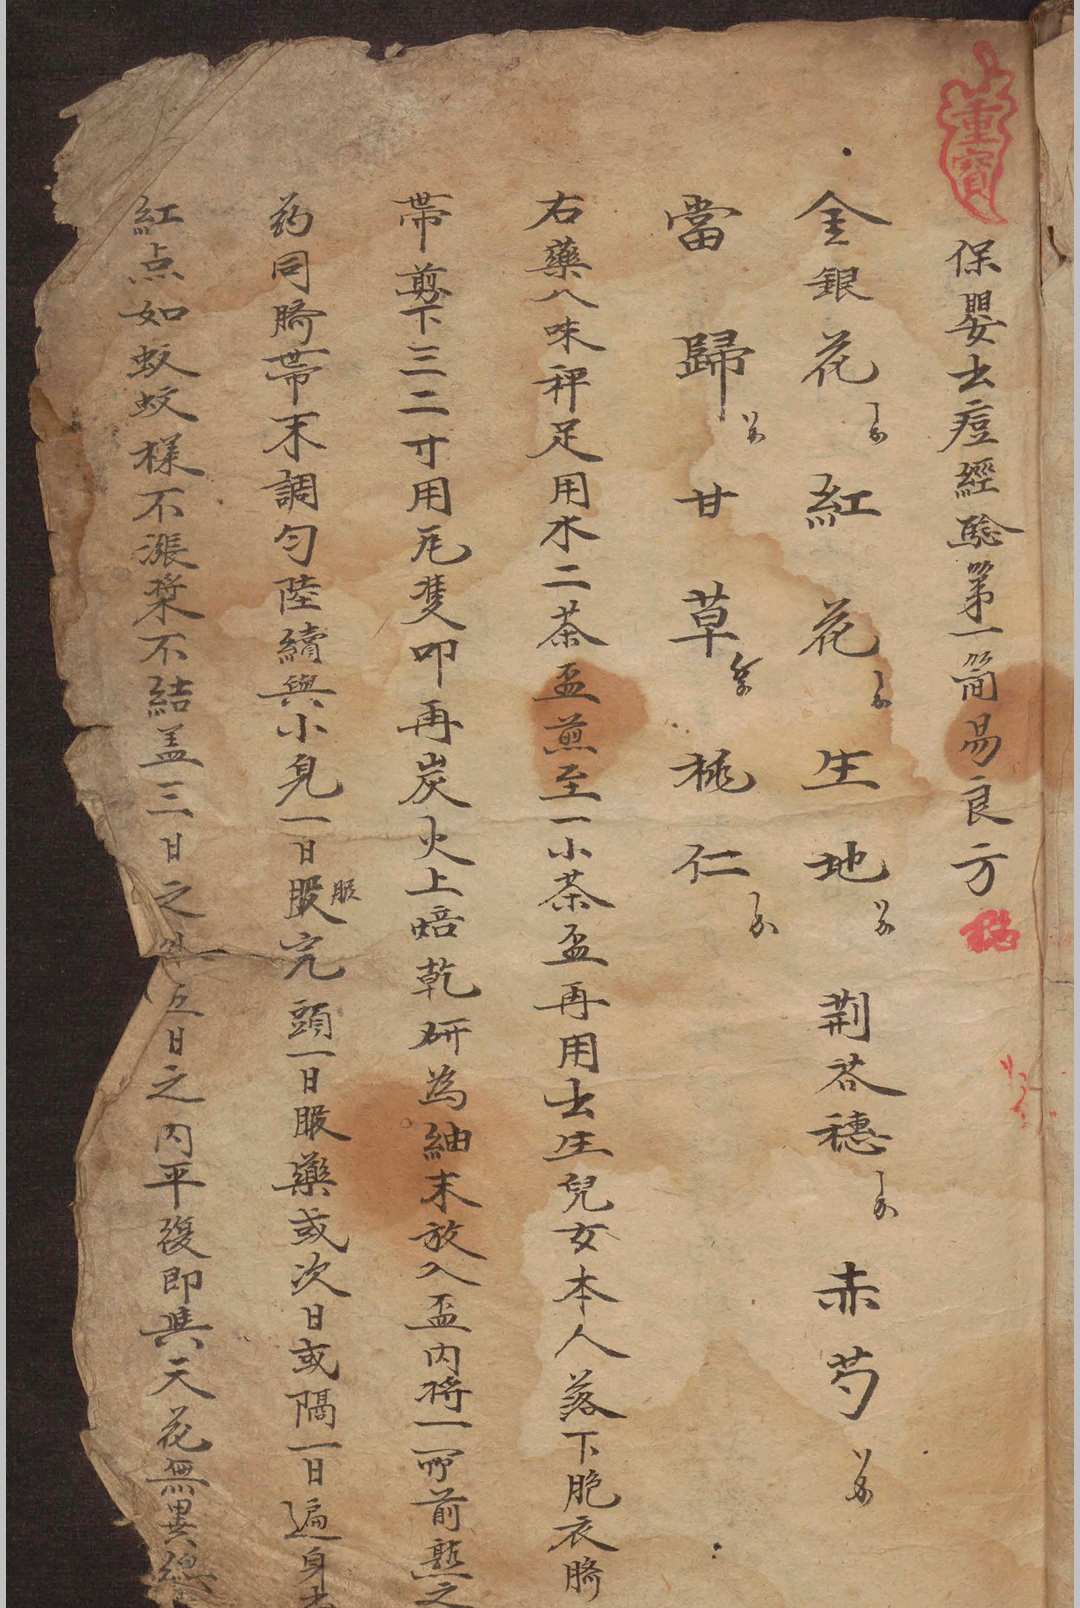 小重寳
保嬰出痘經驗第一簡易良方
金銀花 紅花 生地 荆芥穗 赤芍
當歸 甘草 桃仁
右藥八味秤足用水二茶盃煎至一小茶盃再用出生兒女本人落下胞衣臍
帶剪下三二寸用瓦隻叩再炭火上焙乾研為細末放入盃内將一前煎之
药同臍帶末調匀陸續與小兒一日服完頭一日服藥或次日或隔一日遍身
服
紅点如蚊蚊樣不漲漿不結盖三日之外五日之内平復即與天花無異總